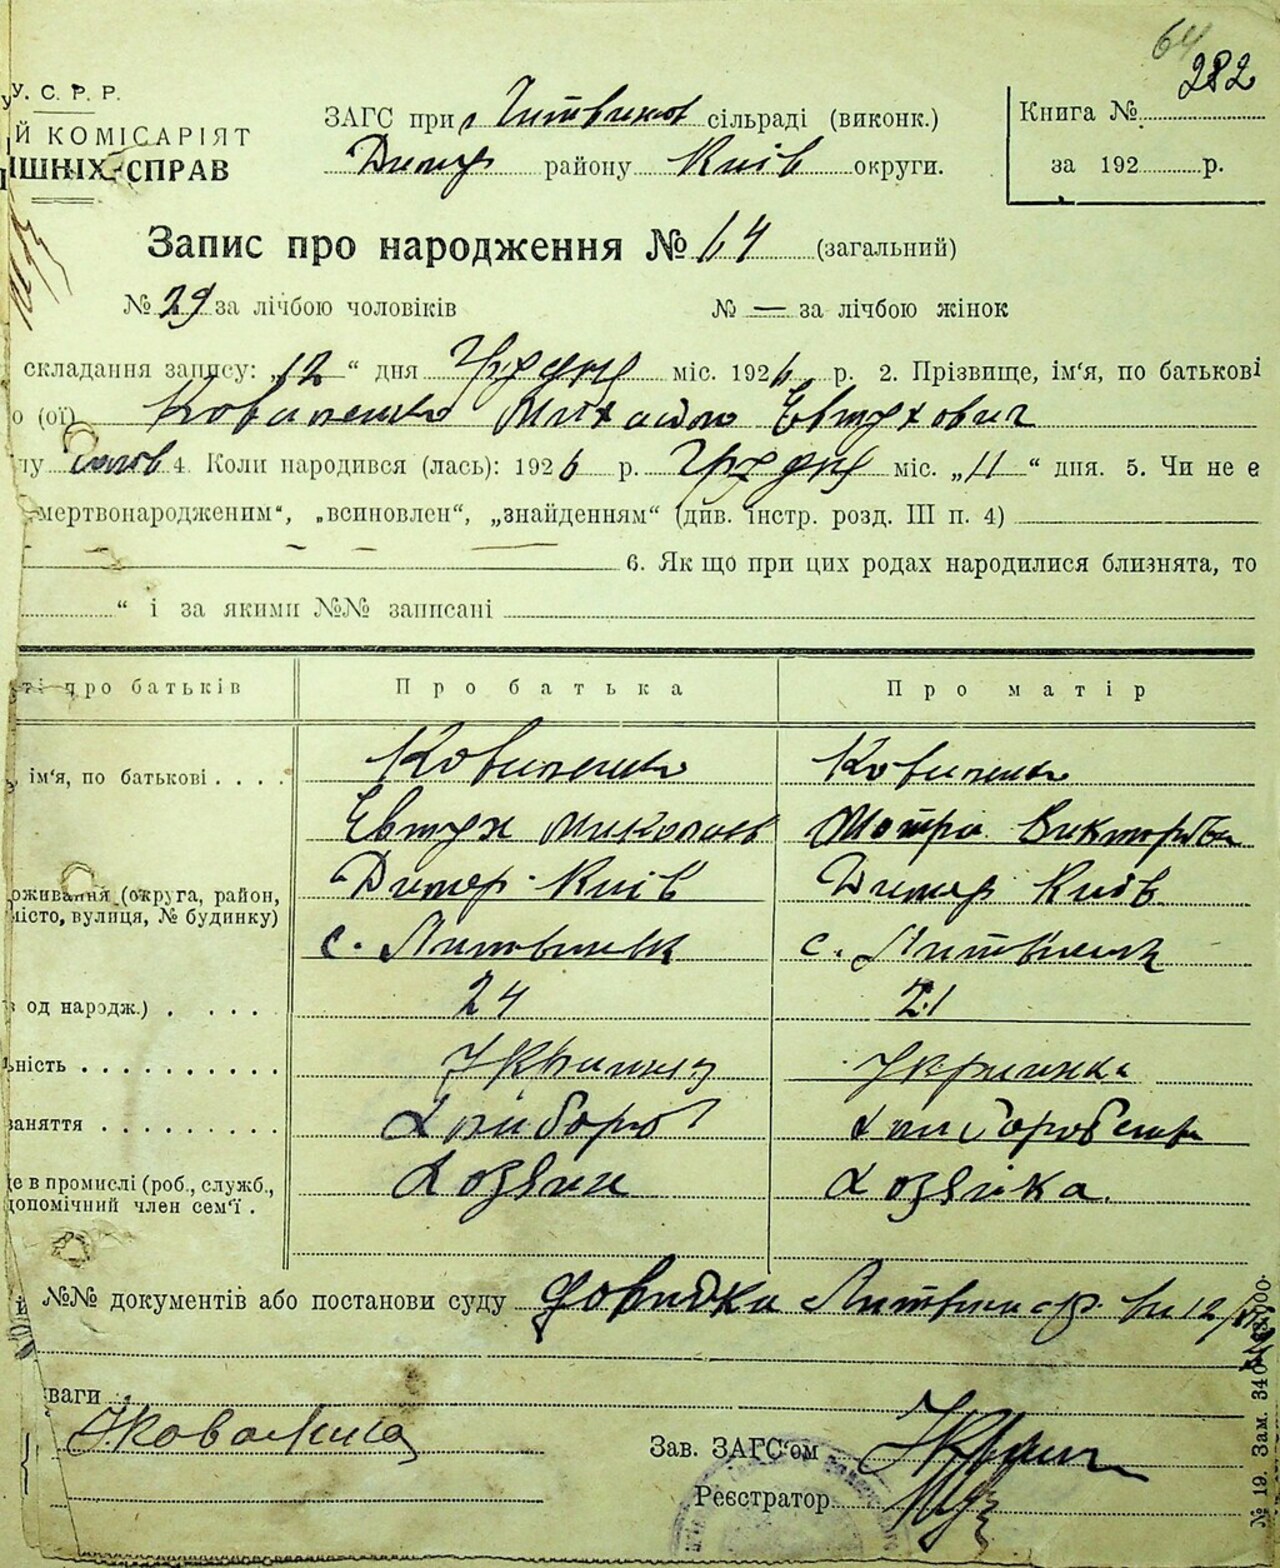 64
282
У. С. Р. Р.
Й КОМІСАРІЯТ
ІШНІХ СПРАВ
ЗАГС при Литвинов сільраді (виконк.)
Димер району Київ округи.
Книга №
за 192 р.
Запис про народження № 64 (загальний)
№ 29 за лічбою чоловіків № — за лічбою жінок
складання запису: „12“ дня Грудня міс. 1926 р. 2. Прізвище, ім'я, по батькові
о (ої) Коваленко Михайло Евтухович
лу чолов 4. Коли народився (лась): 1926 р. Грудня міс. „11“ дня. 5. Чи не є
„мертвонародженим“, „всиновлен“, „знайденням“ (див. інстр. розд. III п. 4)
6. Як що при цих родах народилися близнята, то
“ і за якими №№ записані
ті про батьків Про батька Про матір
ім'я, по батькові Коваленко Коваленко
Евтух Миколаєв Мотря Викторовна
Димер Київ Димер Київ
оживання (округа, район,
місто, вулиця, № будинку)
с. Литвинівка с. Литвинівка
од народж.) 24 21
ьність Українец Українка
заняття Хлибороб Хлиборобство
це в промислі (роб., служб.,
допомічний член сем'ї . Хозяин Хозяйка.
і №№ документів або постанови суду Довидка Литвин с.р. ви 12/
ваги
Коваленко
Зав. ЗАГС'ом
Реєстратор
№ 19. Зам. 340